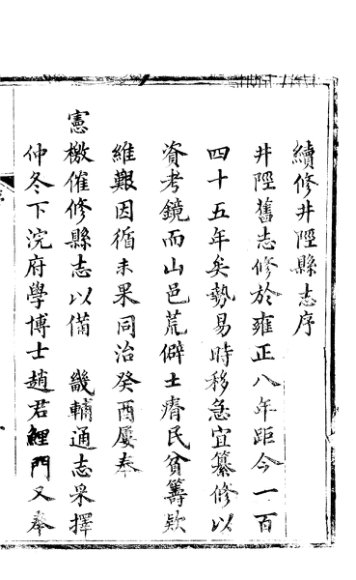 續修井陘縣志序
井陘舊志修於雍正八年距今一百
四十五年矣勢易時移急宜纂修以
資考鏡而山邑荒僻土瘠民貧籌款
維艱因循未果同治癸酉屢奉
憲檄催修縣志以備 畿輔通志采擇
仲冬下浣府學博士趙君鯉門又奉